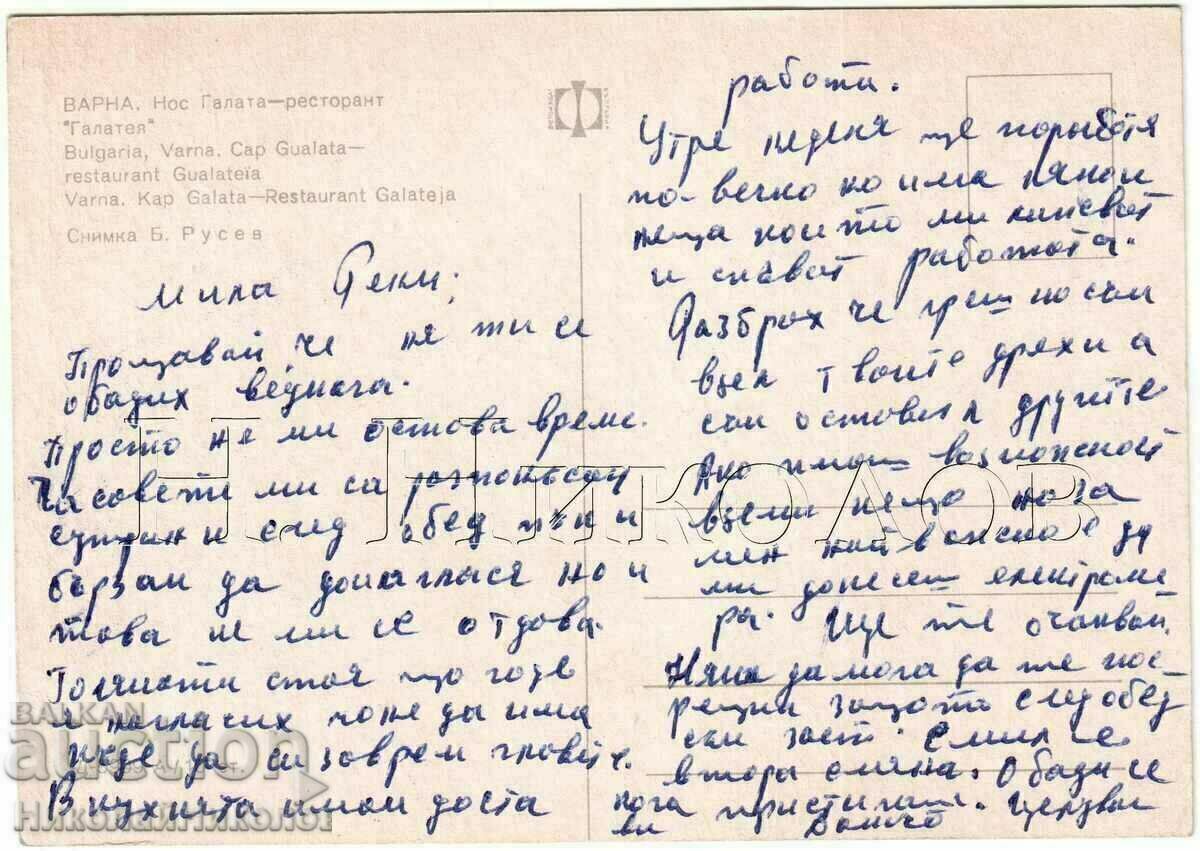 ВАРНА. Нос Галата—ресторант
"Галатея"
Bulgaria, Varna. Cap Gualata—
restaurant Gualateïa
Varna. Kap Galata—Restaurant Galateja
Снимка Б. Русев
Мила
Прощавай, че не ти се
обадих веднага.
Просто не ми остава време.
Часовете ми са разпокъсани
сутрин и след обед пък и
бързам да донаглася но и
това не ми се отдава.
Голямата стая що годе
я нагласих поне да има
къде да си заврем главите.
В кухнята имам доста
работа.
Утре неделя ще поработя
по-вечко но има някои
неща които ми
и спъват работата.
Разбрах че грешно съм
взел твоите дрехи а
съм оставил другите
Ако имаш възможност
вземи нещо но за
мен най важно е да
ми донесеш електроме
ра. Ще те очаквам.
Няма да мога да те пос-
рещна защото следобед
съм заст. Емил е
втора смяна. Обади се
кога пристигаш. Целувам
ви
Н. НИКОЛОВ
BALKAN
auction
НиколайНиколов